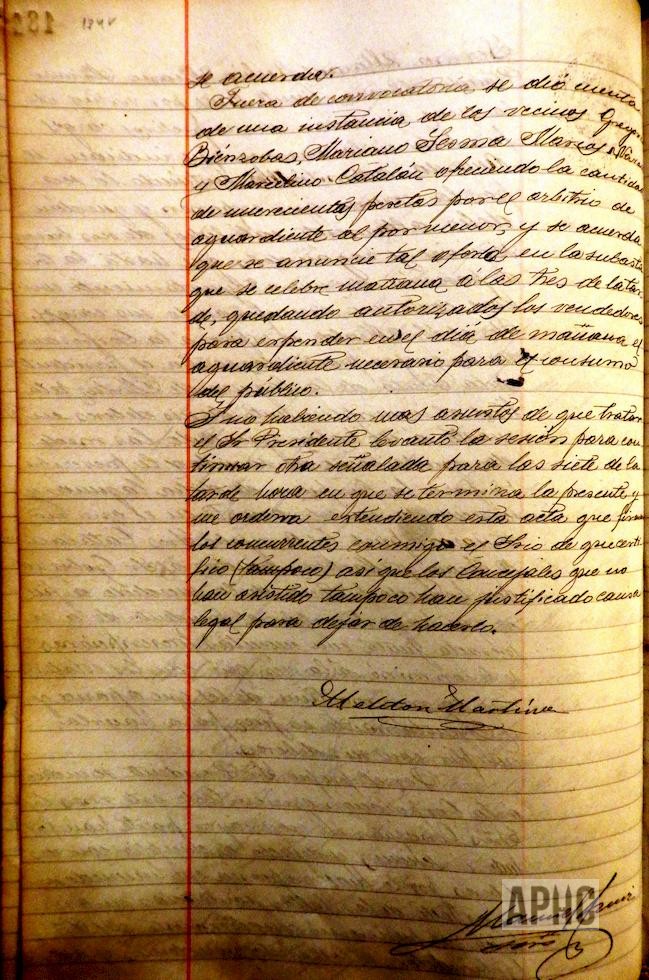 se acuerda.
Fuera de convocatoria, se dió cuenta
de una instancia de los vecinos
Biénzobas, Mariano Lesma Marcos
y Marcelino Catalán ofreciendo la cantidad
de pesetas por el arbitrio de
aguardiente al por menor, y se acuerda
que se anuncie tal oferta, en la subasta
que se celebre mañana á las tres de la tar
de, quedando autorizados los vendedores
para expender en el día de mañana el
aguardiente necesario para el consumo
del público.
Y no habiendo mas asuntos de que tratar
el Sr Presidente levantó la sesión para con
tinuar otra señalada para las siete de la
tarde hora en que se termina la presente y
me ordena extendiendo esta acta que firman
los concurrentes conmigo el Srio de que certi
fico (tampoco) asi que los Concejales que no
han asistido tampoco han justificado causa
legal para dejar de hacerlo.
Meliton Martínez
APHC